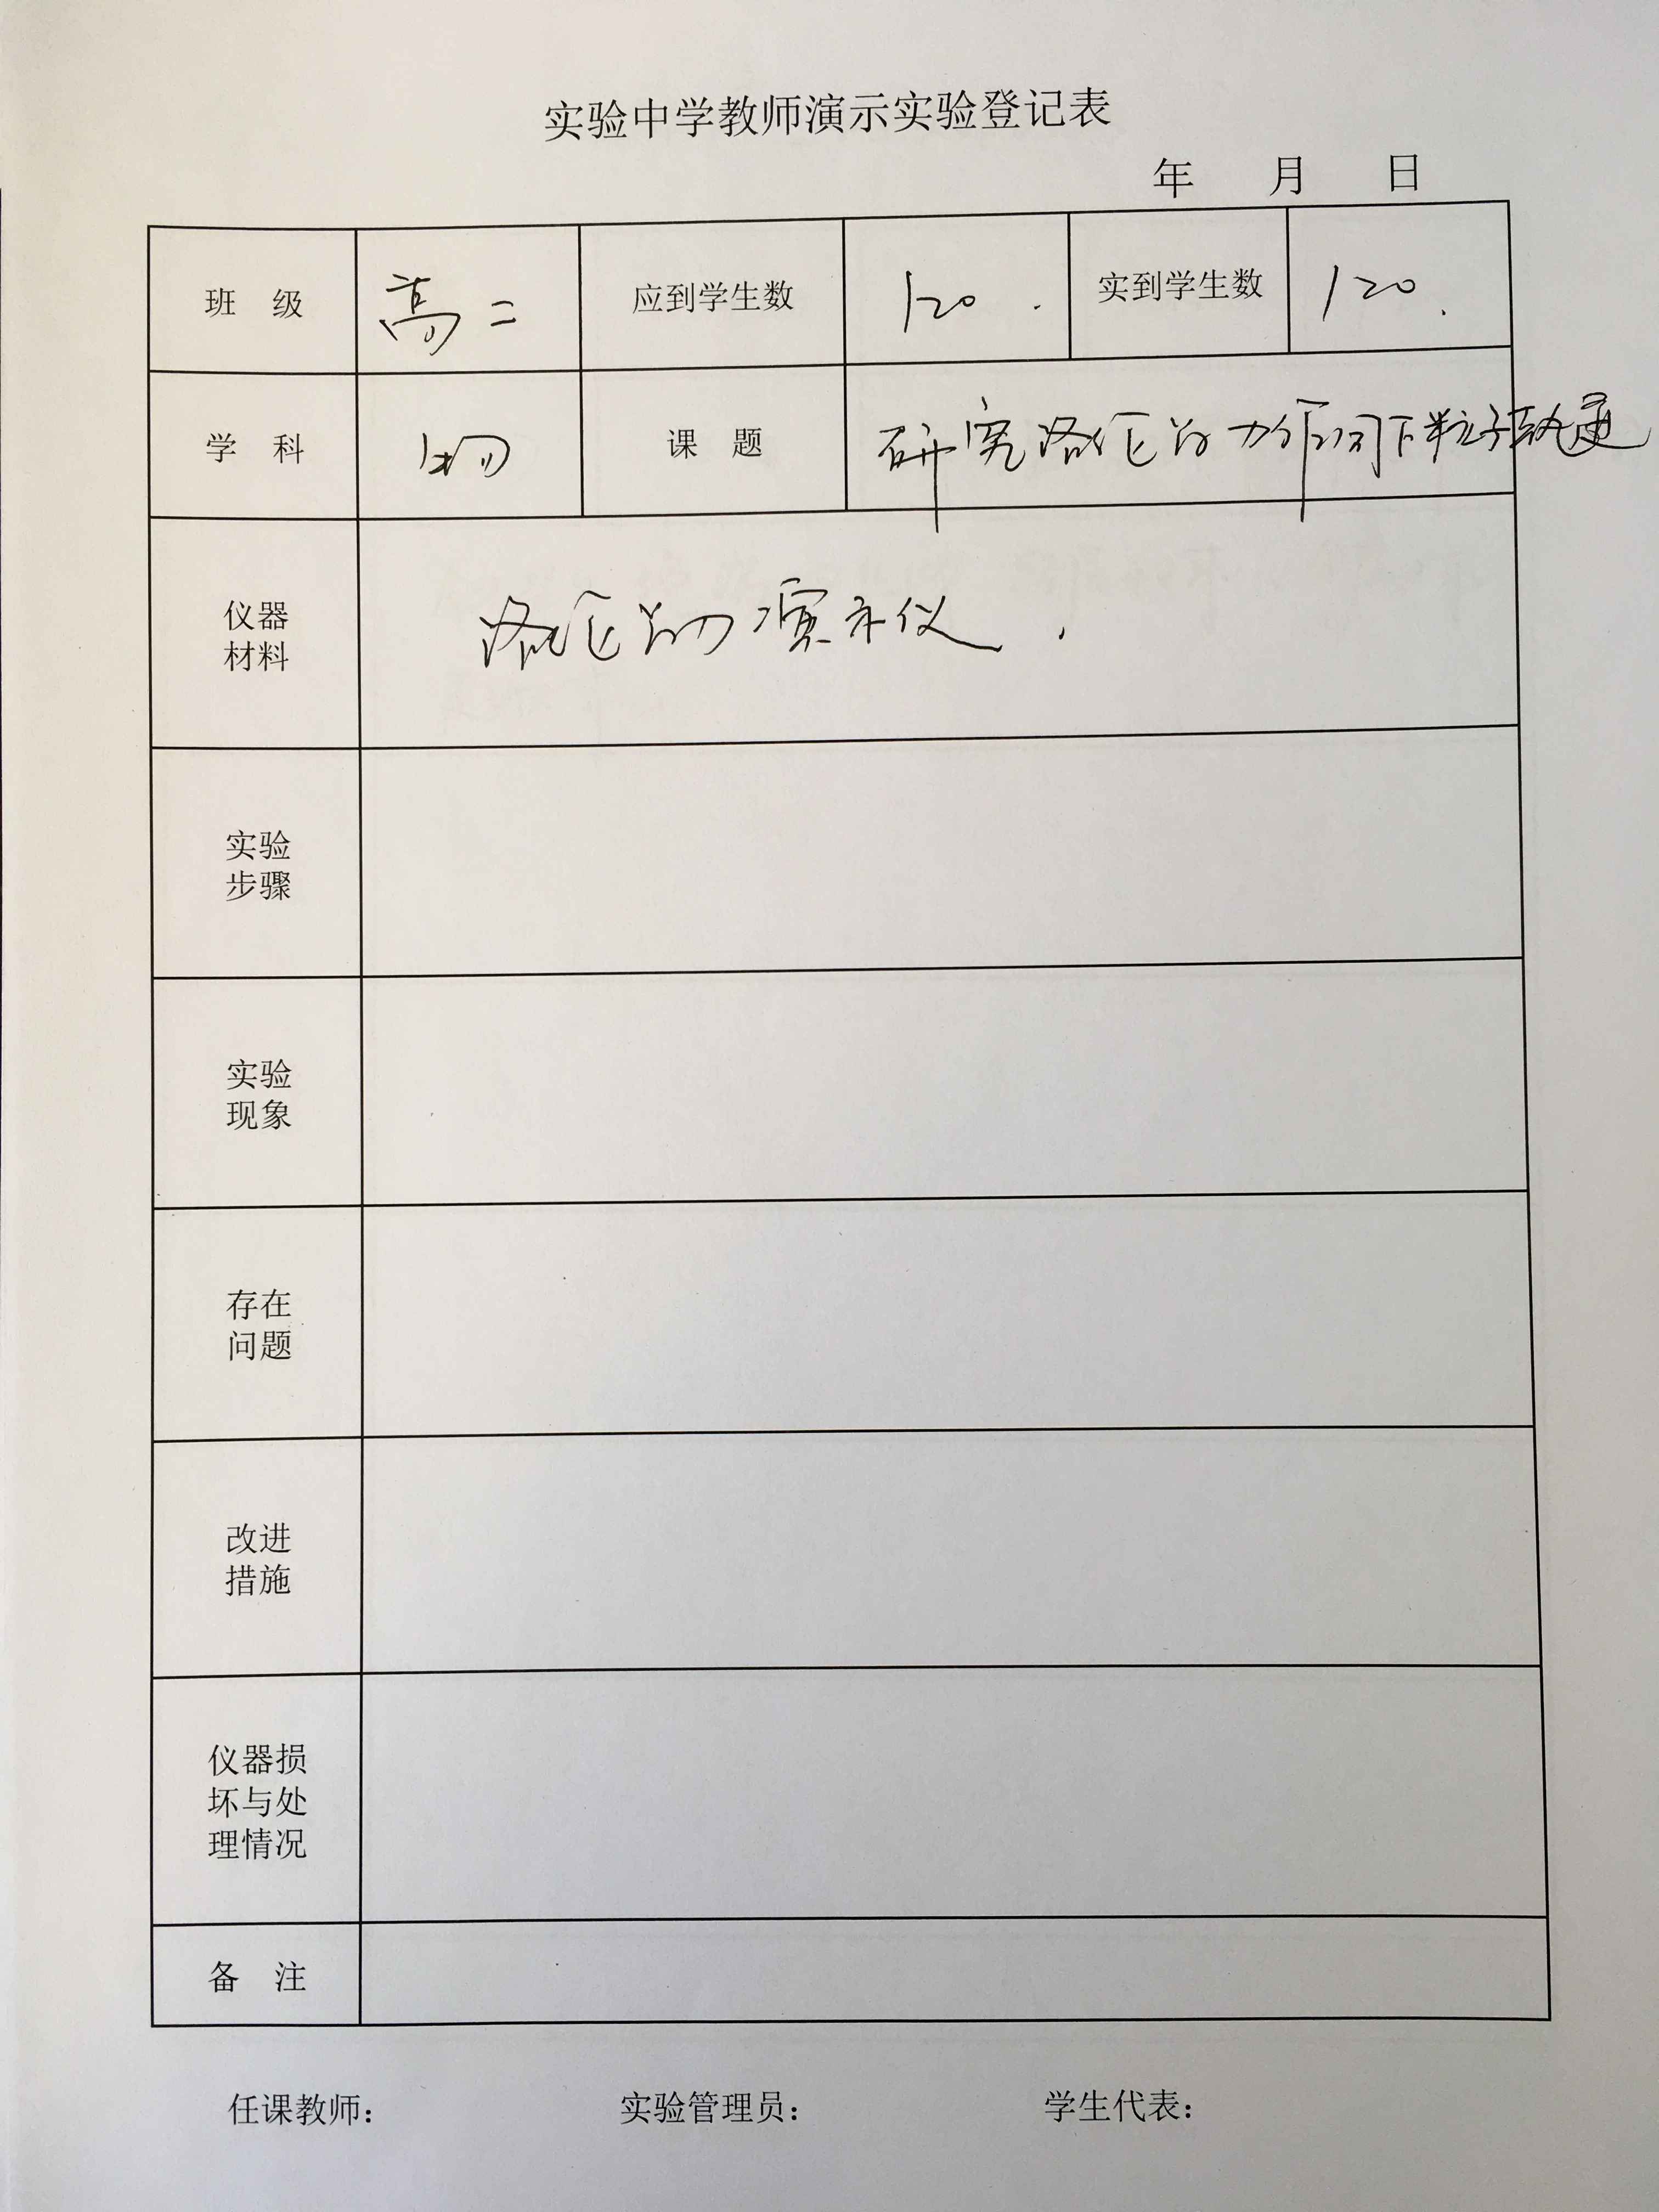 实验中学教师演示实验登记表
年 月 日
班 级 高二 应到学生数 120. 实到学生数 120.
学 科 物 课 题 研究洛伦兹力作用下粒子轨迹
仪器
材料
洛伦兹力演示仪.
实验
步骤
实验
现象
存在
问题
改进
措施
仪器损
坏与处
理情况
备 注
任课教师: 实验管理员: 学生代表: